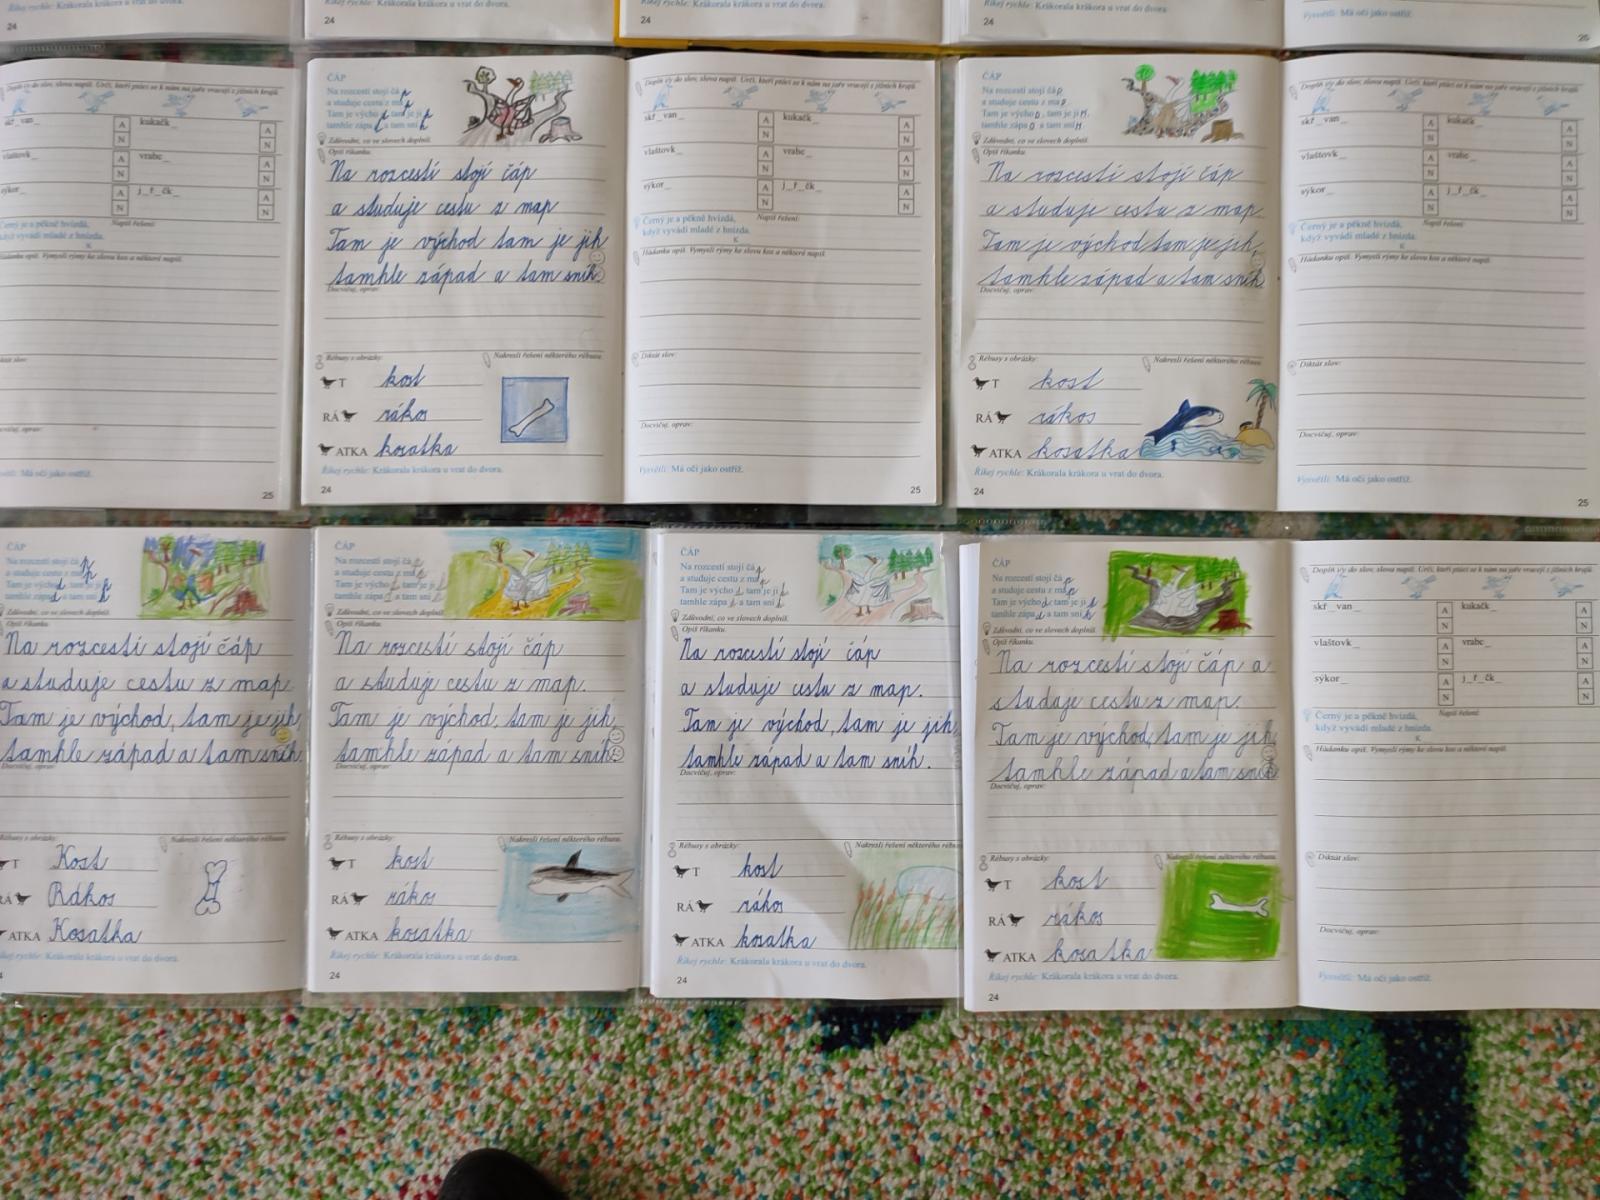 Říkej rychle: Krákorala krákora u vrat do dvora.
24
Říkej rychle: Krákorala krákora u vrat do dvora.
24
Říkej rychle: Krákorala krákora u vrat do dvora.
24
Říkej rychle: Krákorala krákora u vrat do dvora.
24
Vysvětli: Má oči jako ostříž.
25
Doplň i/y do slov, slova napiš. Urči, kteří ptáci se k nám na jaře vracejí z jižních krajů.
skř_van_ A N kukačk_ A N
vlaštovk_ A N vrabc_ A N
sýkor_ A N j_ř_čk_ A N
Černý je a pěkně hvízdá, Napiš řešení:
když vyvádí mladé z hnízda.
K
Hádanku opiš. Vymysli rýmy ke slovu kos a některé napiš.
Diktát slov:
Docvičuj, oprav:
Vysvětli: Má oči jako ostříž.
25
ČÁP
Na rozcestí stojí čáp
a studuje cestu z map
Tam je východ, tam je jih
tamhle západ a tam sníh
Zdůvodni, co ve slovech doplníš.
Opiš říkanku.
Na rozcestí stojí čáp
a studuje cestu z map
Tam je východ tam je jih
tamhle západ a tam sníh.
Docvičuj, oprav:
Rébusy s obrázky:
Nakresli řešení některého rébusu.
T kost
RÁ rákos
ATKA kosatka
Říkej rychle: Krákorala krákora u vrat do dvora.
24
Doplň i/y do slov, slova napiš. Urči, kteří ptáci se k nám na jaře vracejí z jižních krajů.
skř_van_ A N kukačk_ A N
vlaštovk_ A N vrabc_ A N
sýkor_ A N j_ř_čk_ A N
Černý je a pěkně hvízdá, Napiš řešení:
když vyvádí mladé z hnízda.
K
Hádanku opiš. Vymysli rýmy ke slovu kos a některé napiš.
Diktát slov:
Docvičuj, oprav:
Vysvětli: Má oči jako ostříž.
25
ČÁP
Na rozcestí stojí čáp
a studuje cestu z map.
Tam je výcho , tam je ji .
tamhle zápa a tam sní
Zdůvodni, co ve slovech doplníš.
Opiš říkanku.
Na rozcestí stojí čáp
a studuje cestu z map.
Tam je východ tam je jih,
tamhle západ a tam sníh.
Docvičuj, oprav:
Rébusy s obrázky:
Nakresli řešení některého rébusu.
T kost
RÁ rákos
ATKA kosatka
Říkej rychle: Krákorala krákora u vrat do dvora.
24
Doplň i/y do slov, slova napiš. Urči, kteří ptáci se k nám na jaře vracejí z jižních krajů.
skř_van_ A N kukačk_ A N
vlaštovk_ A N vrabc_ A N
sýkor_ A N j_ř_čk_ A N
Černý je a pěkně hvízdá, Napiš řešení:
když vyvádí mladé z hnízda.
K
Hádanku opiš. Vymysli rýmy ke slovu kos a některé napiš.
Diktát slov:
Docvičuj, oprav:
Vysvětli: Má oči jako ostříž.
25
ČÁP
Na rozcestí stojí čáp
a studuje cestu z map
Tam je východ, tam je jih
tamhle západ a tam sníh
Zdůvodni, co ve slovech doplníš.
Opiš říkanku.
Na rozcestí stojí čáp
a studuje cestu z map.
Tam je východ, tam je jih,
tamhle západ a tam sníh.
Docvičuj, oprav:
Rébusy s obrázky:
Nakresli řešení některého rébusu.
T Kost
RÁ Rákos
ATKA Kosatka
Říkej rychle: Krákorala krákora u vrat do dvora.
ČÁP
Na rozcestí stojí čáp
a studuje cestu z map
Tam je východ, tam je jih
tamhle západ a tam sníh
Zdůvodni, co ve slovech doplníš.
Opiš říkanku.
Na rozcestí stojí čáp
a studuje cestu z map.
Tam je východ, tam je jih,
tamhle západ a tam sníh.
Docvičuj, oprav:
Rébusy s obrázky:
Nakresli řešení některého rébusu.
T kost
RÁ rákos
ATKA kosatka
Říkej rychle: Krákorala krákora u vrat do dvora.
24
ČÁP
Na rozcestí stojí čáp
a studuje cestu z map
Tam je východ, tam je jih
tamhle západ a tam sníh
Zdůvodni, co ve slovech doplníš.
Opiš říkanku.
Na rozcestí stojí čáp
a studuje cestu z map.
Tam je východ, tam je jih,
tamhle západ a tam sníh.
Docvičuj, oprav:
Rébusy s obrázky:
Nakresli řešení některého rébusu.
T kost
RÁ rákos
ATKA kosatka
Říkej rychle: Krákorala krákora u vrat do dvora.
24
ČÁP
Na rozcestí stojí čáp
a studuje cestu z map
Tam je východ, tam je jih
tamhle západ a tam sníh
Zdůvodni, co ve slovech doplníš.
Opiš říkanku.
Na rozcestí stojí čáp a
studuje cestu z map.
Tam je východ, tam je jih
tamhle západ a tam sníh
Docvičuj, oprav:
Rébusy s obrázky:
Nakresli řešení některého rébusu.
T kost
RÁ rákos
ATKA kosatka
Říkej rychle: Krákorala krákora u vrat do dvora.
24
Doplň i/y do slov, slova napiš. Urči, kteří ptáci se k nám na jaře vracejí z jižních krajů.
skř_van_ A N kukačk_ A N
vlaštovk_ A N vrabc_ A N
sýkor_ A N j_ř_čk_ A N
Černý je a pěkně hvízdá, Napiš řešení:
když vyvádí mladé z hnízda.
K
Hádanku opiš. Vymysli rýmy ke slovu kos a některé napiš.
Diktát slov:
Docvičuj, oprav:
Vysvětli: Má oči jako ostříž.